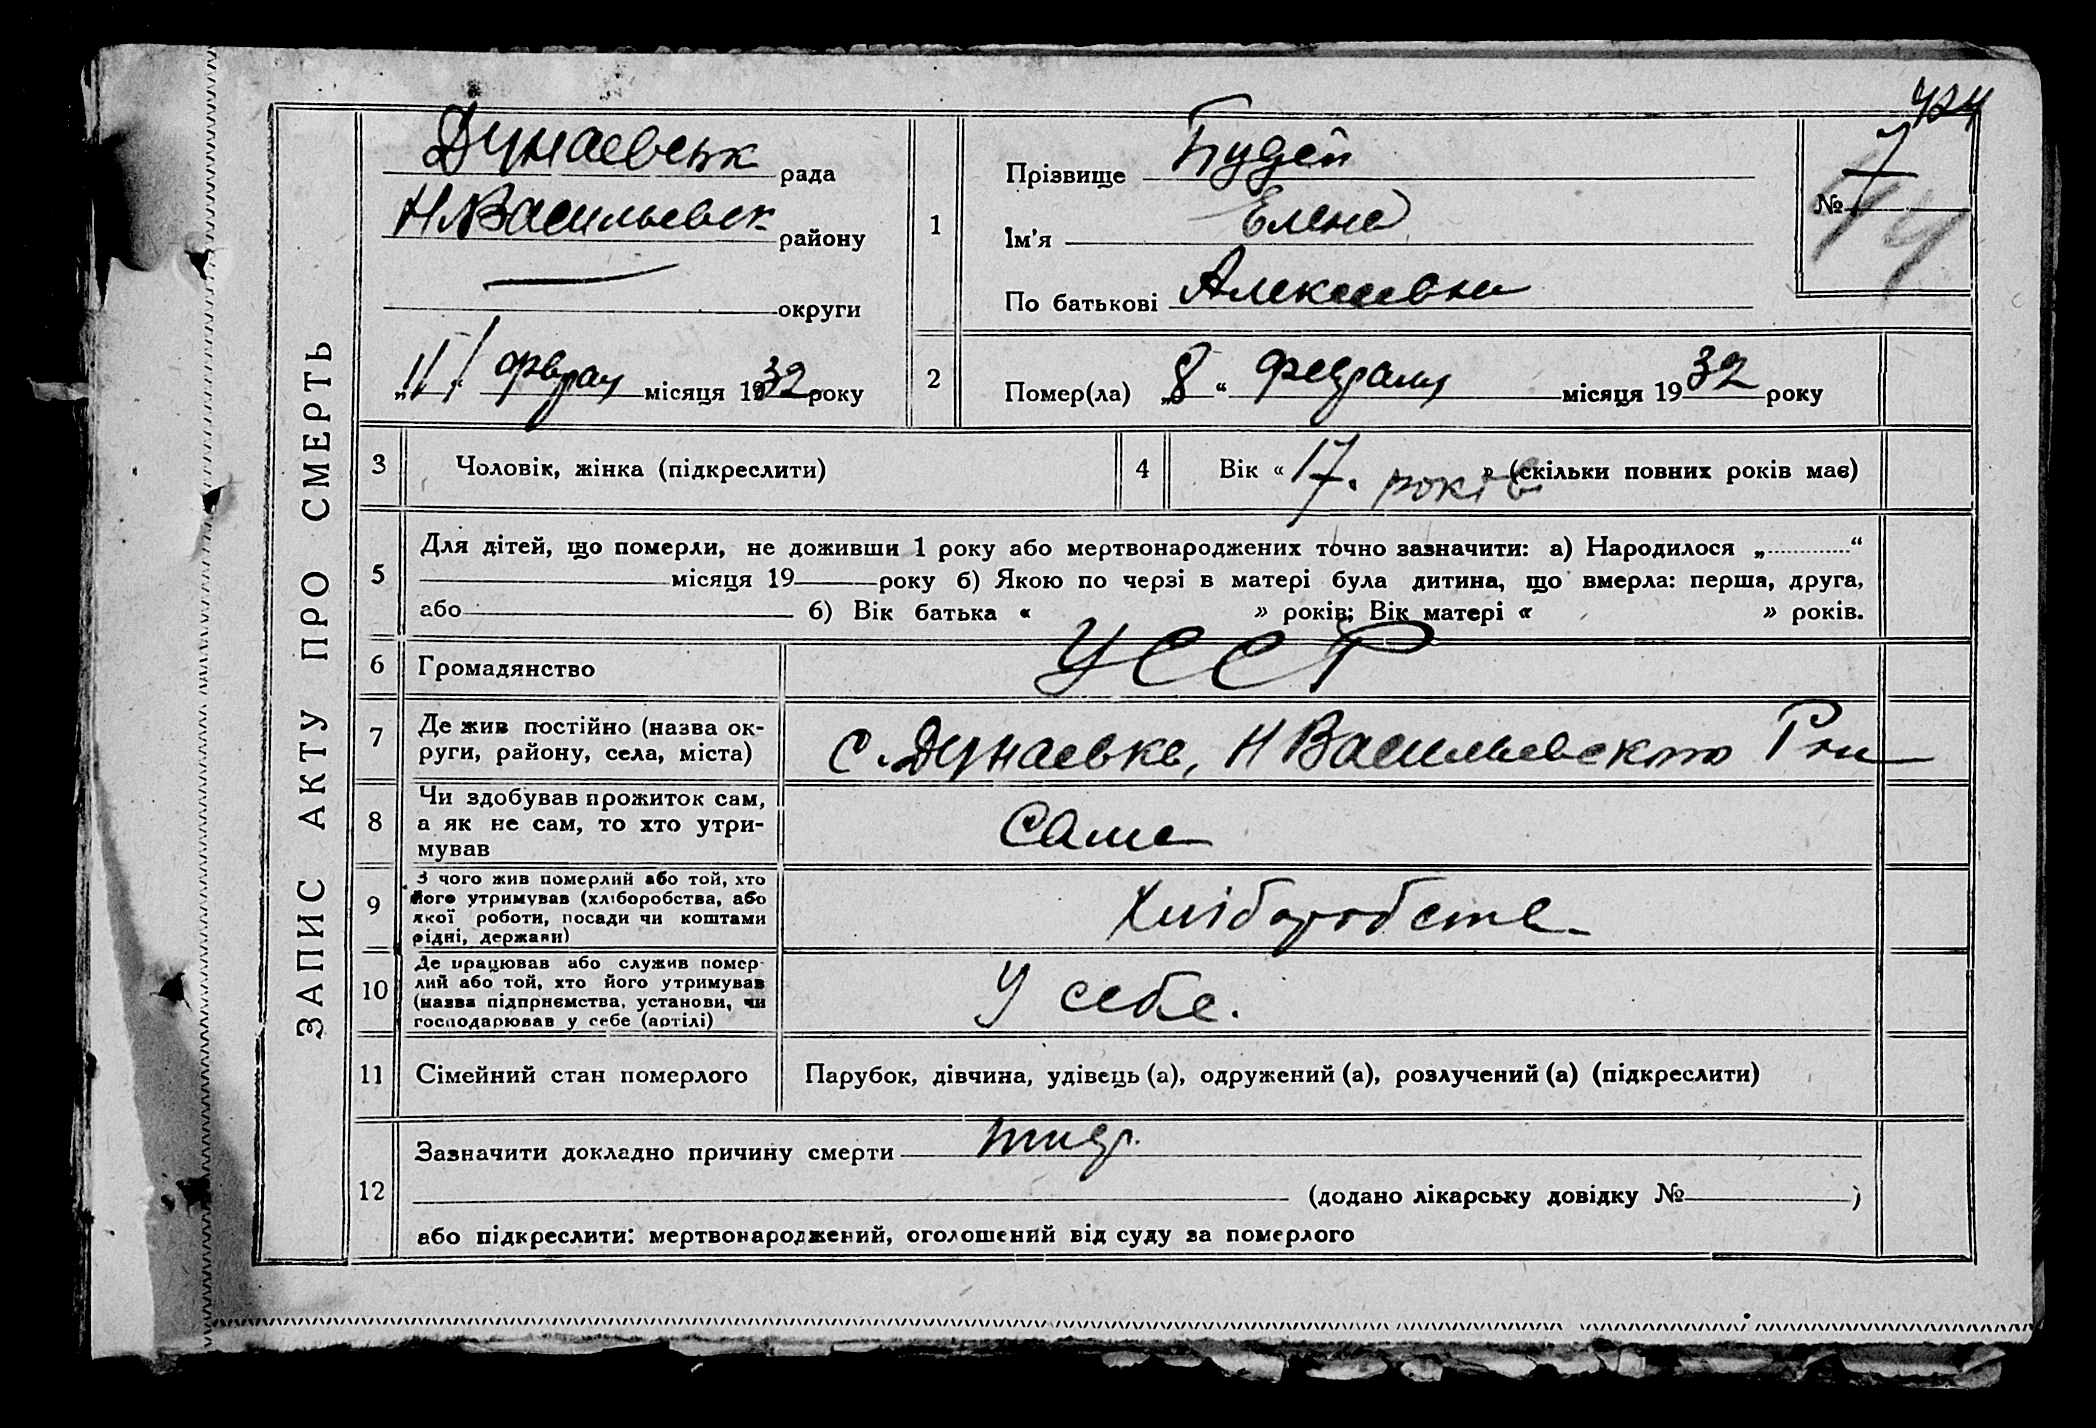 424
7
№
44
Дунаевськ рада
Н.Васильевск району
— округи
„11“ феврал місяця 1932 року
ЗАПИС АКТУ ПРО СМЕРТЬ
1
Прізвище Будей
Ім'я Елена
По батькові Алексеевна
2
Помер(ла) „8“ февраля місяця 1932 року
3 Чоловік, жінка (підкреслити)
4 Вік «17. років» (скільки повних років має)
5
Для дітей, що померли, не доживши 1 року або мертвонароджених точно зазначити: а) Народилося „............“
місяця 19 року б) Якою по черзі в матері була дитина, що вмерла: перша, друга,
або б) Вік батька « » років; Вік матері « » років.
6 Громадянство УССР
7
Де жив постійно (назва ок-
руги, району, села, міста)
с. Дунаевке, Н Васильевского Рна
8
Чи здобував прожиток сам,
а як не сам, то хто утри-
мував
Сама
9
З чого жив померлий або той, хто
його утримував (хліборобства, або
якої роботи, посади чи коштами
рідні, держави)
Хліборобства
10
Де працював або служив помер-
лий або той, хто його утримував
(назва підприємства, установи, чи
господарював у себе (артілі)
У себе.
11 Сімейний стан померлого Парубок, дівчина, удівець (а), одружений (а), розлучений (а) (підкреслити)
12
Зазначити докладно причину смерти
(додано лікарську довідку № )
або підкреслити: мертвонароджений, оголошений від суду за померлого